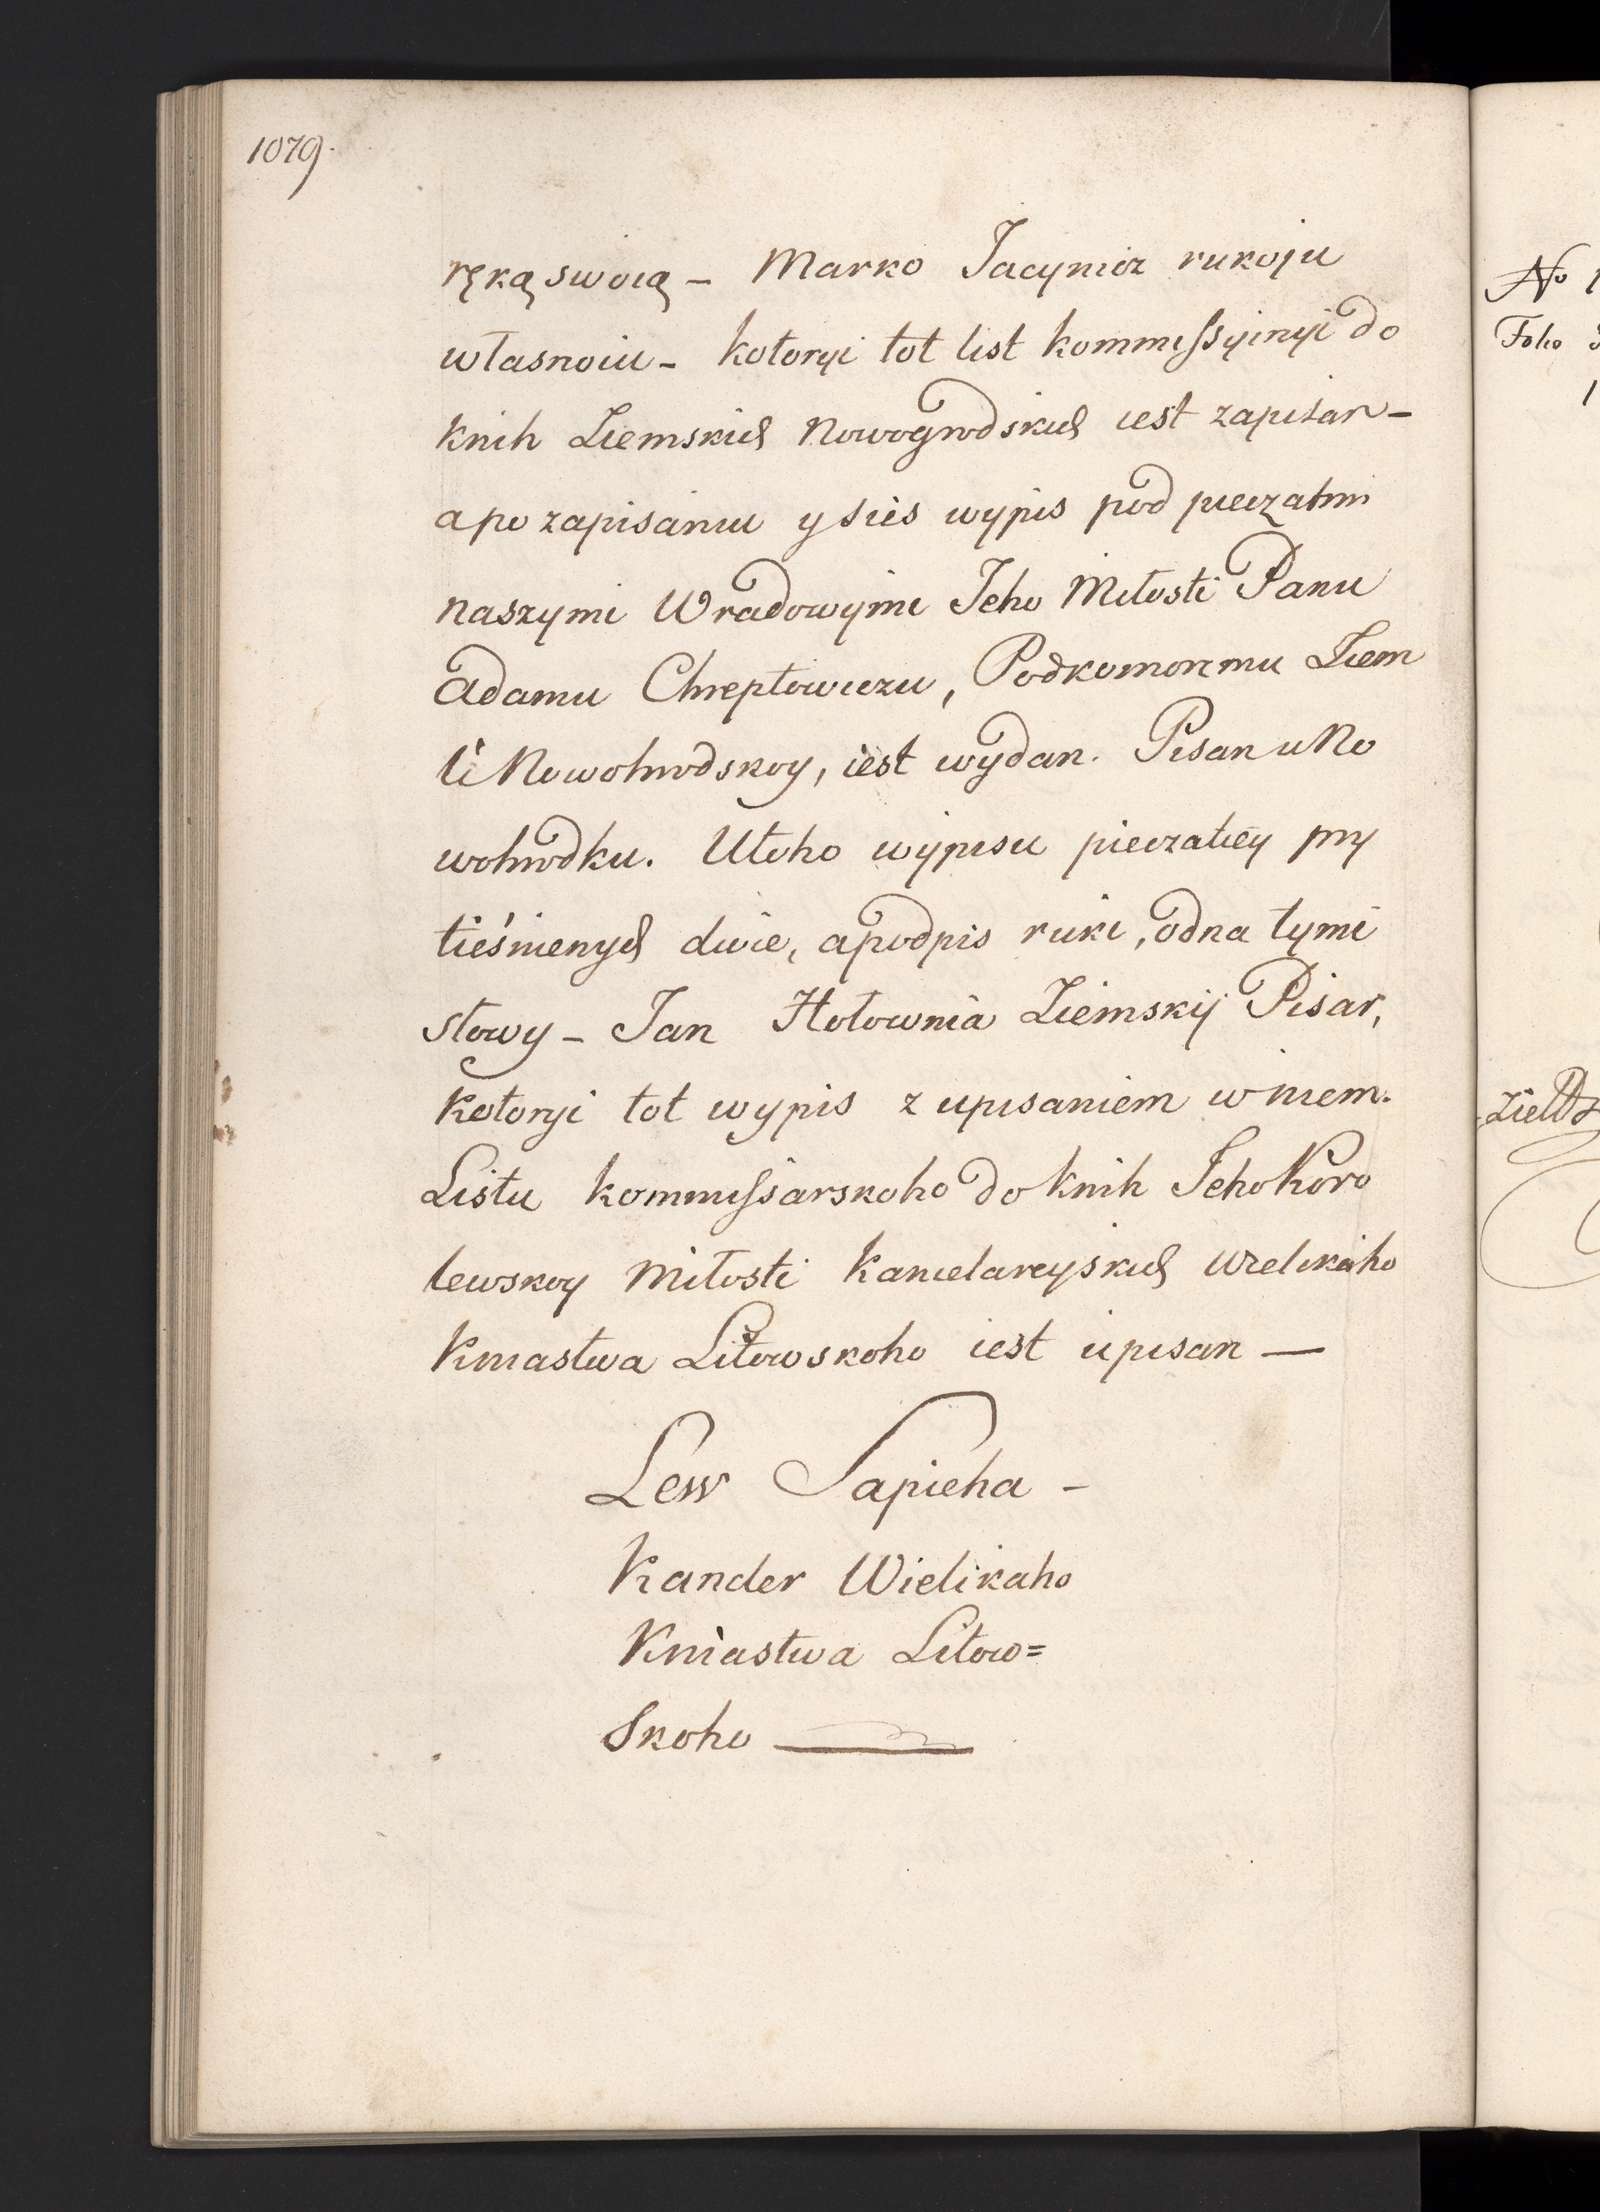 1079.
ręką swoią - Marko Jacynicz rukoju
własnoiu - kotoryi tot list kommissyinyi do
knih Ziemskich Nowogrodskich iest zapisan -
a po zapisaniu y sies wypis pod pieczatmi
naszymi Wradowymi Jeho Miłosti Panu
Adamu Chreptowiczu, Podkomorimu Ziem
li Nowohrodskoy, iest wydan. Pisan u No
wohrodku. Utoho wypisu pieczatiey pry
tieśnienych dwie, a podpis ruki, odna tymi
słowy - Jan Hołownia Ziemskij Pisar,
Kotoryi tot wypis z upisaniem w niem.
Listu kommissarskoho do knih Jeho Koro
lewskoy Miłosti Kancelaryskich Wielikaho
Kniastwa Litowskoho iest upisan —
Lew Sapieha -
Kancler Wielikaho
Kniastwa Litow=
Skoho —
No 1
Folio